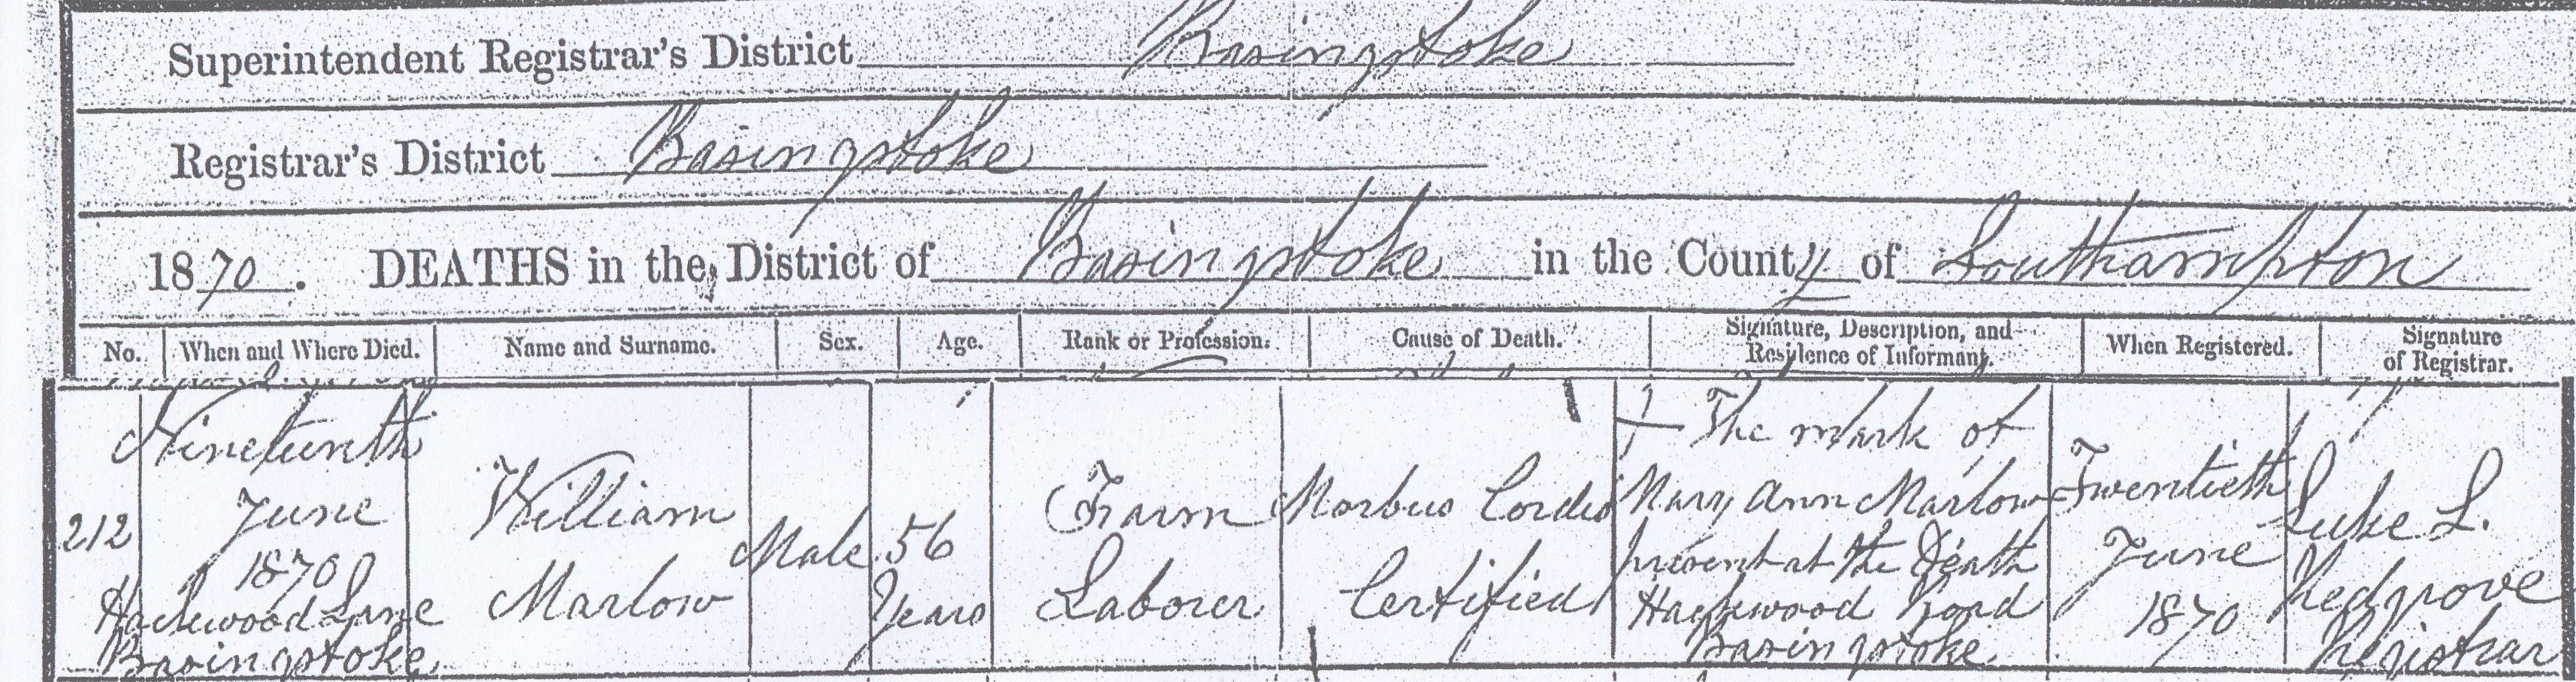 Superintendent Registrar's District Basingstoke
Registrar's District Basingstoke
1870. DEATHS in the District of Basingstoke in the County of Southampton
No. When and Where Died. Name and Surname. Sex. Age. Rank or Profession. Cause of Death. Signature, Description, and Residence of Informant. When Registered. Signature of Registrar.
212
Nineteenth
June
1870
Lane
Basingstoke
William
Marlow
Male
56
Years
Farm
Laborer
Morbus Cordis
Certified
The mark of
Mary Ann Marlow
present at the Death
Road
Basingstoke
Twentieth
June
1870
Luke L.
Redgrove
Registrar